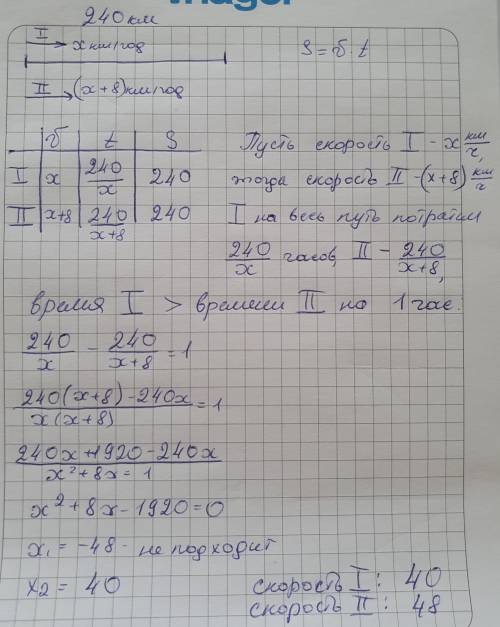 240 км
I х км/год
S = v · t
II (х+8) км/год
v t S
I х 240/х 240
II х+8 240/(х+8) 240
Пусть скорость I - х км/ч,
тогда скорость II - (х+8) км/ч
I на весь путь потратил
240/х часов, II - 240/(х+8),
время I > времени II на 1 час.
240/х - 240/(х+8) = 1
(240(х+8) - 240х)/(х(х+8)) = 1
240х + 1920 - 240х
х² + 8х = 1
х² + 8х - 1920 = 0
х₁ = -48 - не подходит
х₂ = 40
скорость I : 40
скорость II : 48